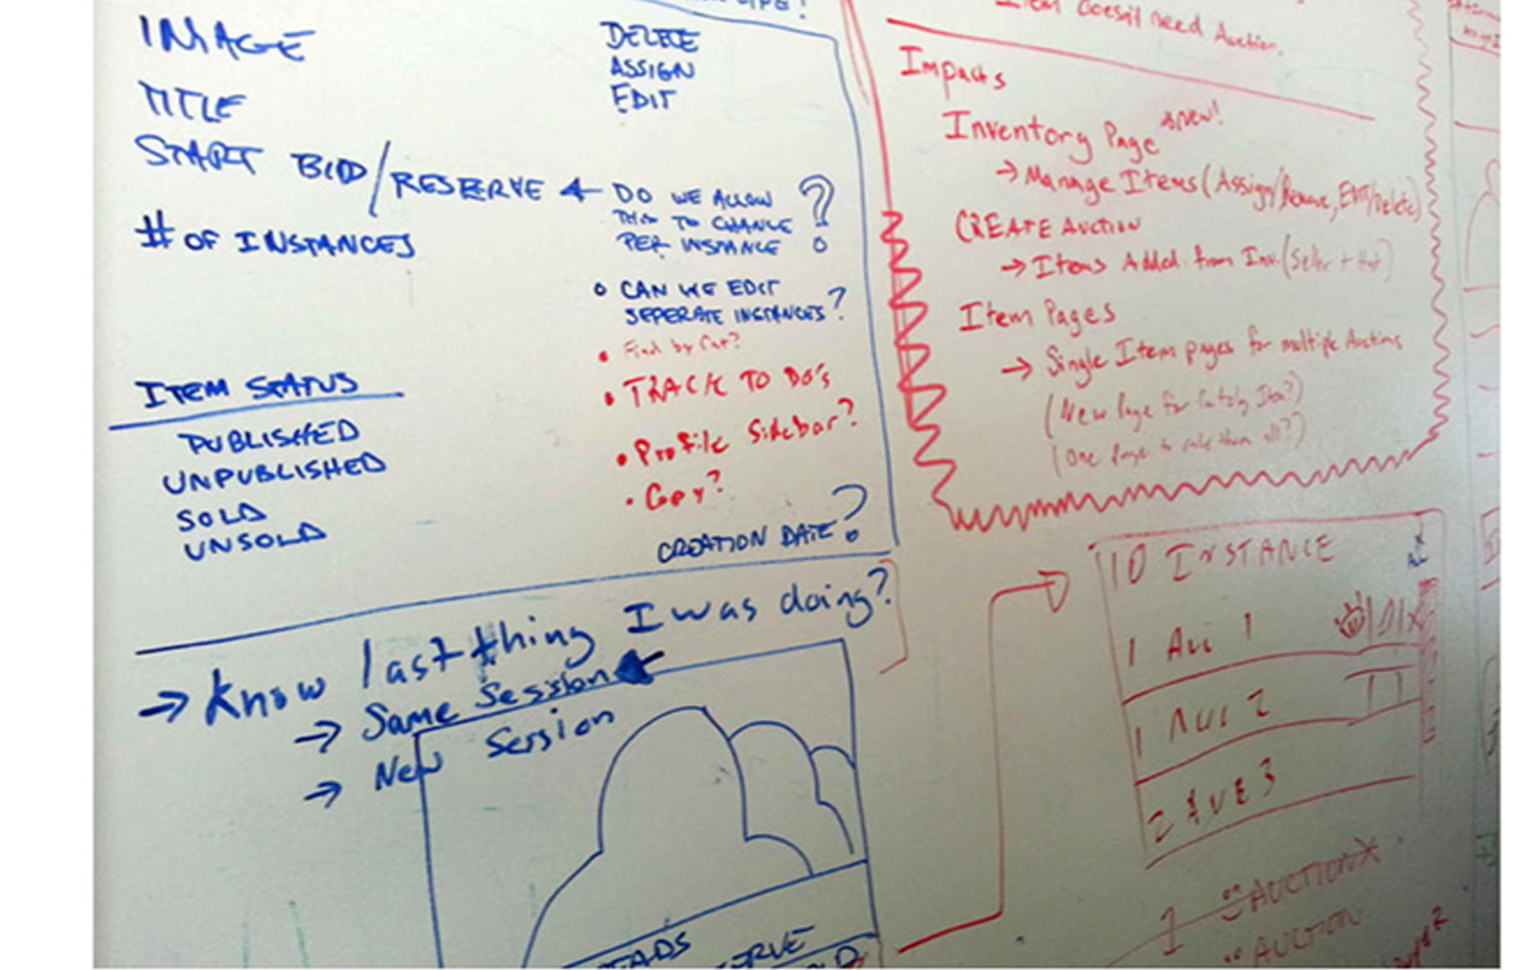 IMAGE
TITLE
START BID/RESERVE
# OF INSTANCES
DELETE
ASSIGN
EDIT
DO WE ALLOW
THIS TO CHANGE
PER INSTANCE ?
CAN WE EDIT
SEPERATE INSTANCES?
Find by Cat?
TRACK TO DO's
Profile Sidebar?
Copy?
CREATION DATE?
ITEM STATUS
PUBLISHED
UNPUBLISHED
SOLD
UNSOLD
→ Know last thing I was doing?
→ Same Session
→ New Session
Item doesn't need Auction.
Impacts
Inventory Page *new!
→ Manage Items (Assign/Remove, Edit/Delete)
CREATE AUCTION
→ Items Added from Inv. (Seller +
Item Pages
→ Single Item pages for multiple Auctions
(New Page for Item?)
(One Page to rule them all?)
10 INSTANCE
1 AUC 1
1 AUC 2
2 AUC 3
1 AUCTION X
AUCTION